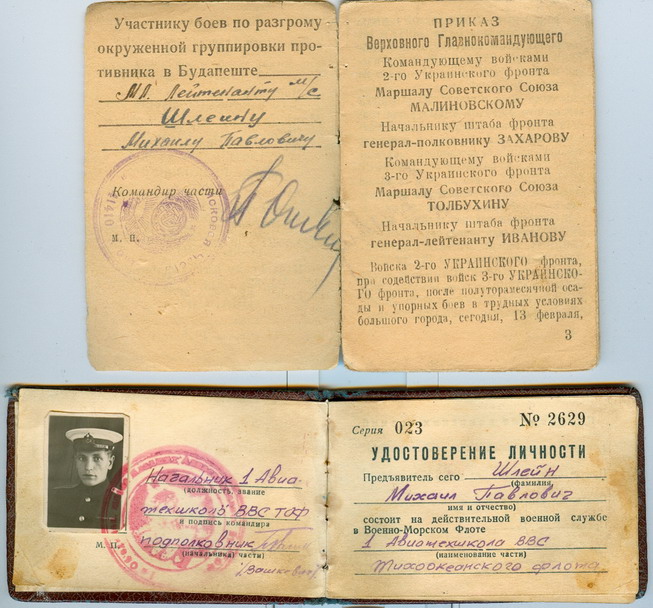 Участнику боев по разгрому
окруженной группировки про-
тивника в Будапеште
мл. лейтенанту м/с
Шлейну
Михаилу Павловичу
Командир части
М. П.
ПРИКАЗ
Верховного Главнокомандующего
Командующему войсками
2-го Украинского фронта
Маршалу Советского Союза
МАЛИНОВСКОМУ
Начальнику штаба фронта
генерал-полковнику ЗАХАРОВУ
Командующему войсками
3-го Украинского фронта
Маршалу Советского Союза
ТОЛБУХИНУ
Начальнику штаба фронта
генерал-лейтенанту ИВАНОВУ
Войска 2-го УКРАИНСКОГО фронта,
при содействии войск 3-го УКРАИНСКО-
ГО фронта, после полуторамесячной оса-
ды и упорных боев в трудных условиях
большого города, сегодня, 13 февраля,
3
Начальник 1 Авиа-
(должность, звание
техшколы ВВС ТОФ
и подпись командира
подполковник
(начальника) части)
М. П.
Серия 023 № 2629
УДОСТОВЕРЕНИЕ ЛИЧНОСТИ
Предъявитель сего Шлейн
(фамилия,
Михаил Павлович
имя и отчество)
состоит на действительной военной службе
в Военно-Морском Флоте
1 Авиатехшкола ВВС
(наименование части)
Тихоокеанского флота